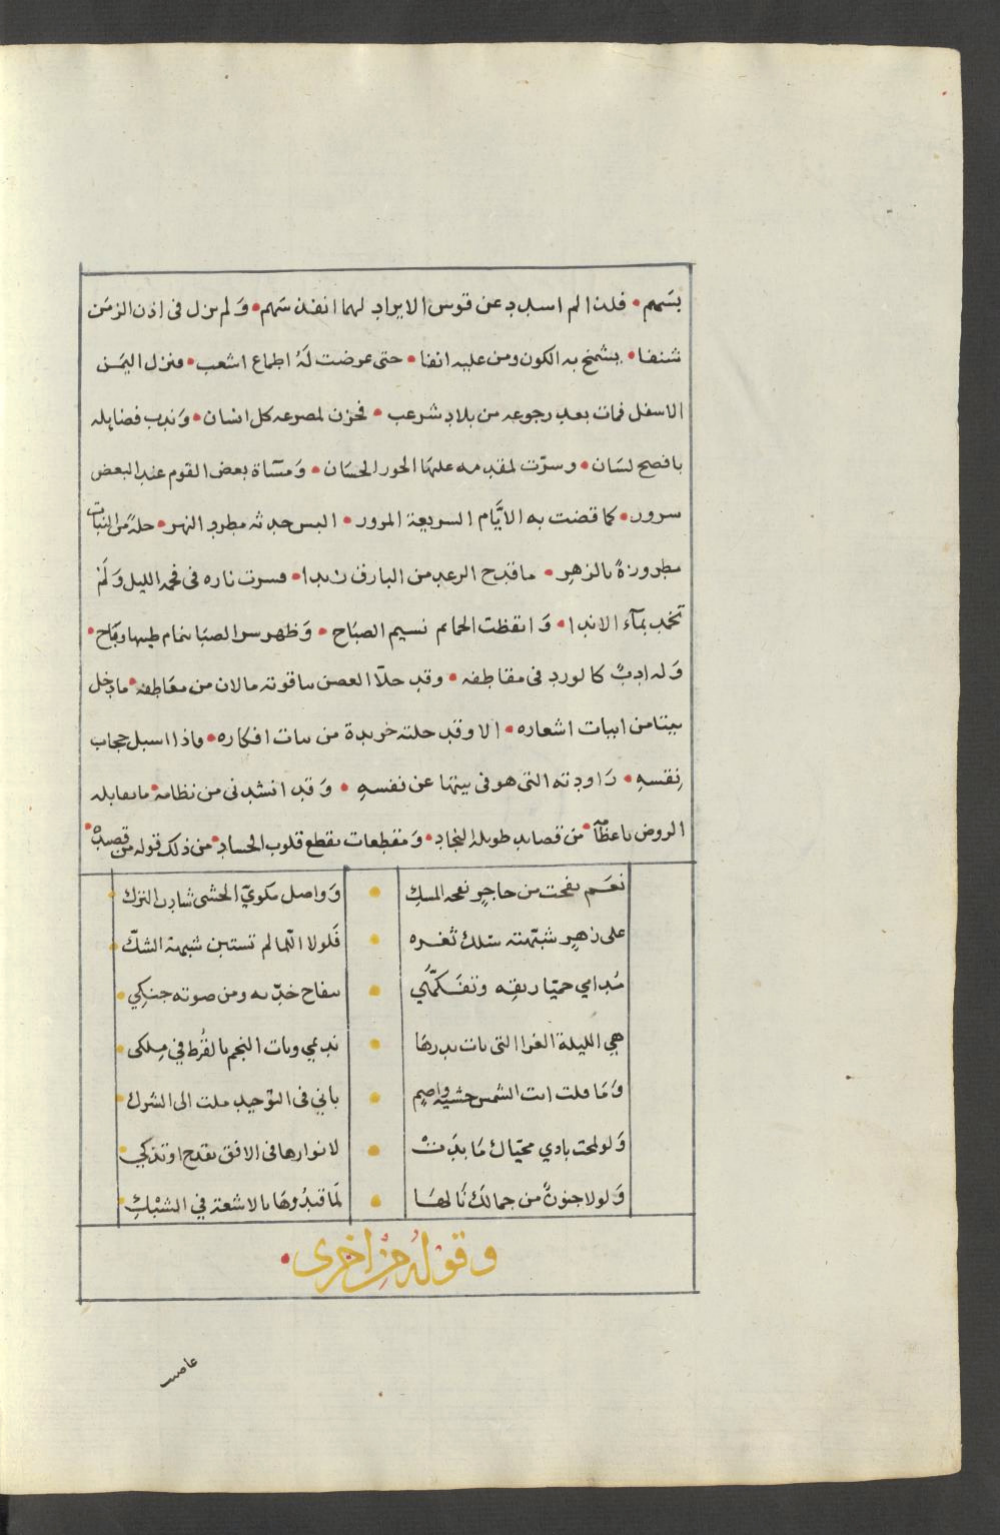 بسهم • فلذا لم اسدد عن قوس الايراد لهما انفذ سهم • وَلم يزل فى اذن الزمَن
شنفا • يشمخ به الكون ومن عليه انفا • حتى عرضت لَهُ اطماع اشعب • فنزل اليمَن
الاسفل فمات بعد رجوعه من بلاد شرعب • فحزن لمصرعه كل انسان • وَندب فضايله
بافصح لسَان • وسرّت لمقدمه عليهَا الحور الحسَان • وَمسَآة بعض القوم عند البعض
سرور • كما قضت به الايَّام السريعة المرور • البس جدثه مطرد النهر • حلةً من النبات
مطرورزةً بالزهر • ما قدح الرعد من البارق زندا • فسرت ناره فى فحمة الليل وَلَمْ
تخمد بمآء الاندا • وَايقظت الحمايم نسيم الصبَاح • وَظهر سر الصبَا بتمام طيبها وبَاح •
وَله ادبٌ كالورد فى مقاطفه • وقد حلّا الغصن بياقوته ما لان من معَاطفه • ما دخل
بيتا من ابيات اشعاره • الا وقد حلته خريدة من بنات افكاره • واذا اسبل حجاب
نِقسهِ • رَاودته التى هو فى بيتها عن نفسهِ • وَقد انشدنى من نظامه • ما يقابله
الروض باعظآ • من قصايد طويلة النجاد • وَمقطعات تقطع قلوب الحساد • من ذلك قوله من قصيدةٍ •
نعَم نفحت من حاجرٍ نفحة المسكِ • وَواصل مكويّ الحشى شادن الترك
على زهرٍ شبّهته سلك ثغره • فَلولا اللّما لم تستبن شبهة الشكّ
مُدامي حميّا ريقِه وتفَكّهُي • بتفاح خدّيه ومن صوته جنكِي
هِي الليلة الغرا التى بات بدرهَا • نديمي وبات النجم بالقُرط في مِلكى
وَمَا قلت انت الشمس خشية واصِم • باني فى التوّحيد ملت الى الشرك
وَلو لمحت بادي محيّاك مَا بدَتْ • لانوارها فى الافق تقدح او تذكي
وَلولا جنونٌ من جمالك نَالهَا • لَمَا قيدُوهَا بالاشعة في الشبْكِ
وقوله من اخرى •